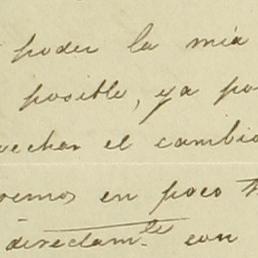 poder la mia
posible, ya po
vechar el cambio
remos en poco t
directam.te con